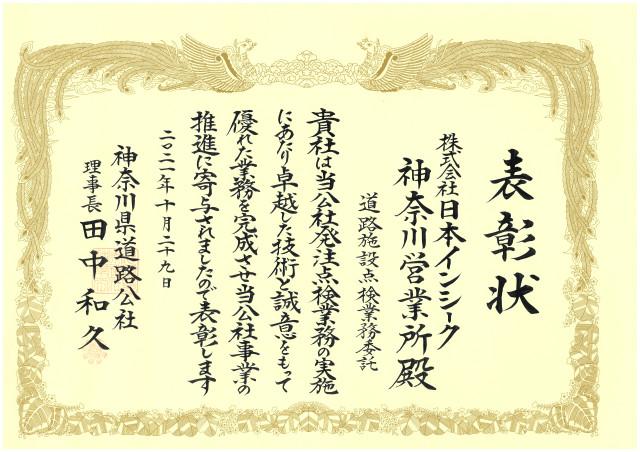 表彰状
株式会社日本インシーク
神奈川営業所殿
道路施設点検業務委託
貴社は当公社発注点検業務の実施
にあたり卓越した技術と誠意をもって
優れた業務を完成させ当公社事業の
推進に寄与されましたので表彰します
二〇二一年十月二十九日
神奈川県道路公社
理事長 田中和久